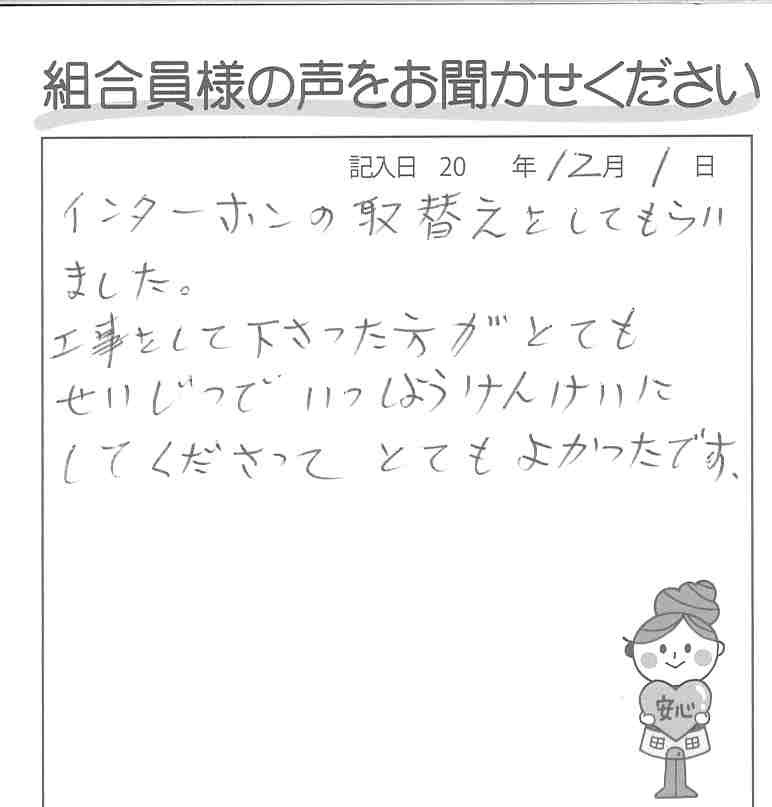 組合員様の声をお聞かせください
記入日 20 年 12月 1 日
インターホンの取替えをしてもらい
ました。
工事をして下さった方がとても
せいじつで いっしょうけんけいに
してくださって とてもよかったです、
安心